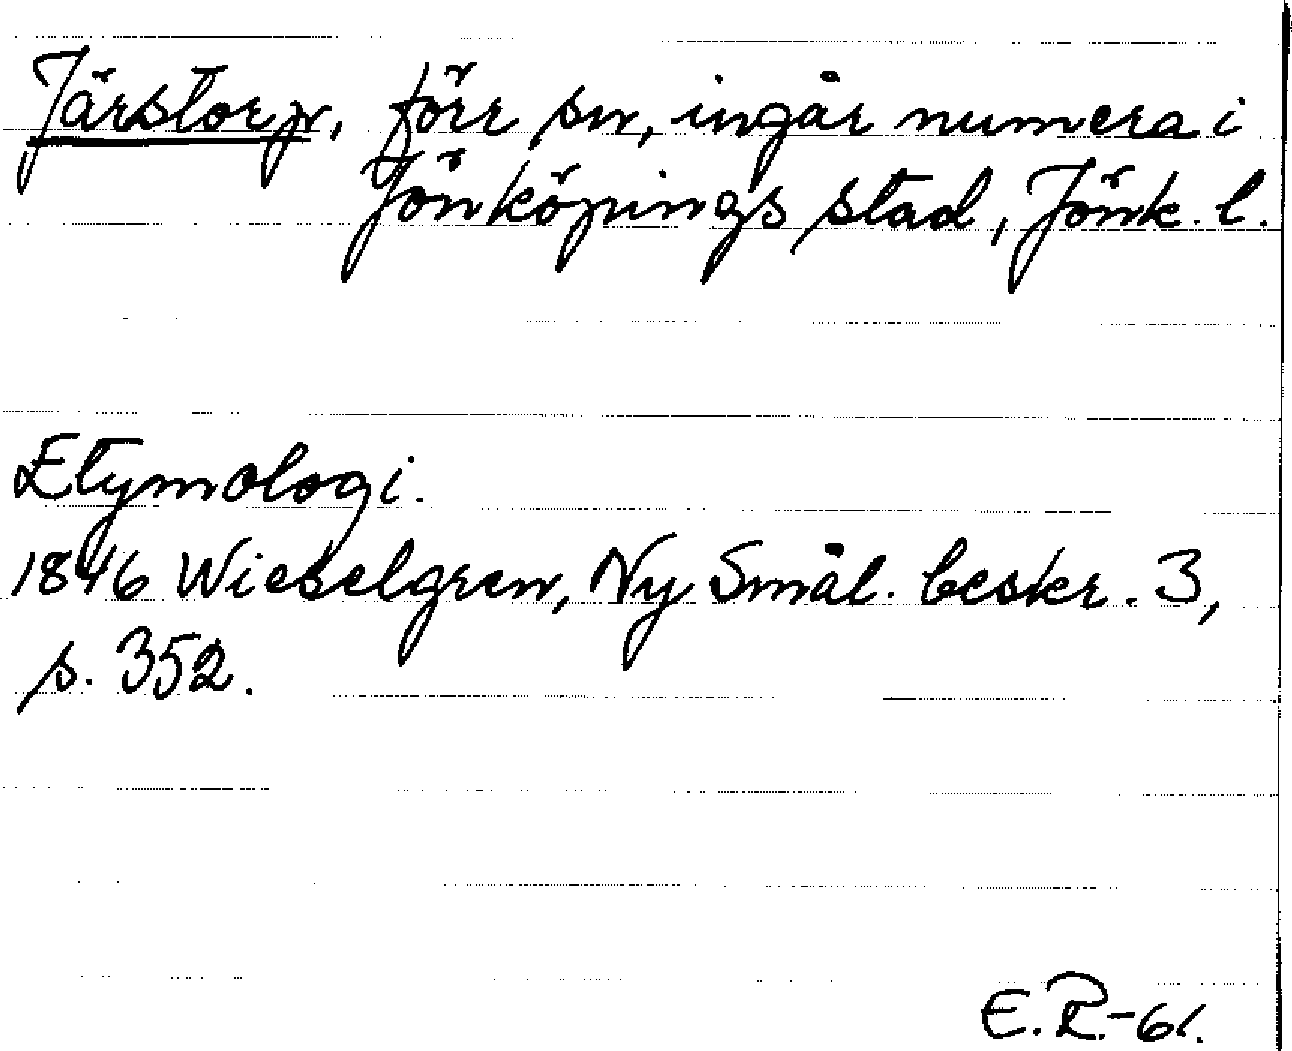 Järstorp, förr sn, ingår numera i
Jönköpings stad, Jönk. l.
Etymologi.
1846 Wieselgren, Ny Smål. beskr. 3,
s. 352.
E.R.-61.